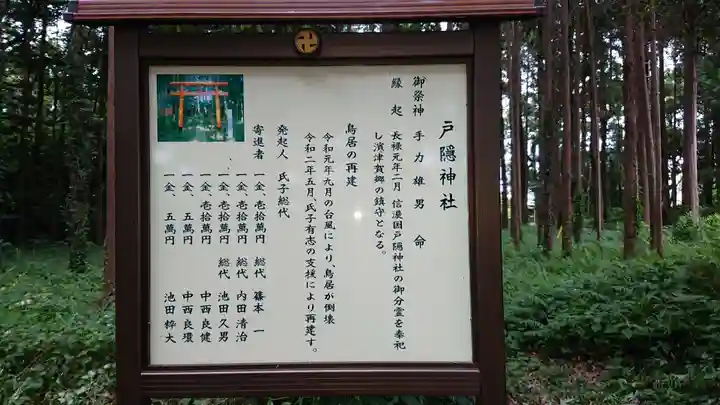 戸隠神社
御祭神 手力雄男命
縁起 長禄元年二月 信濃国戸隠神社の御分霊を奉祀
し濱津賀郷の鎮守となる。
鳥居の再建
令和元年九月の台風により、鳥居が倒壊
令和二年五月、氏子有志の支援により再建す。
発起人 氏子総代
寄進者 一金、壱拾萬円 総代 篠本一
一金、壱拾萬円 総代 内田清治
一金、壱拾萬円 総代 池田久男
一金、壱拾萬円 中西良健
一金、五萬円 中西良環
一金、五萬円 池田梓大